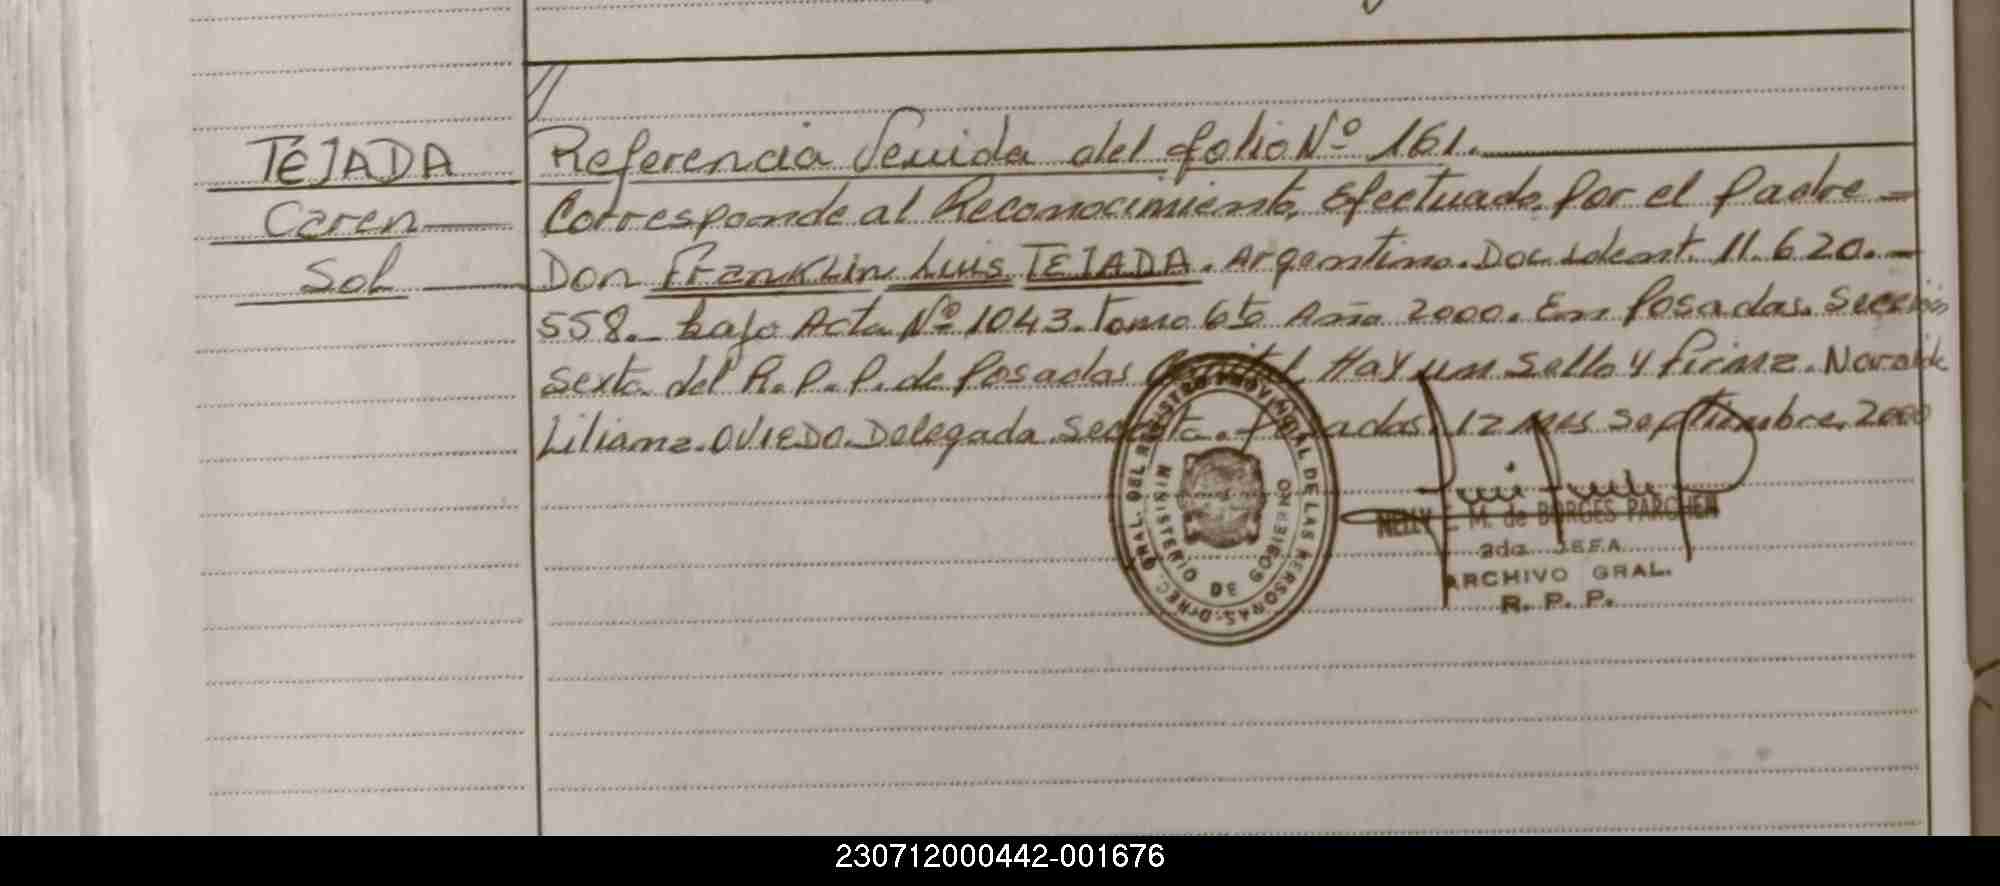 TEJADA
Caren
Sol
Referencia Venida del folio Nº 161.
Corresponde al Reconocimiento, Efectuado, Por el Padre
Don Franklin Luis TEJADA. Argentino. Doc. Ident. 11.620.-
558.- bajo Acta Nº 1043. Tomo 6to Año 2000. En Posadas. Sección
Sexta del R.P.P. de Posadas Capital. Hay un Sello y Firma.
Liliana. OVIEDO. Delegada. Posadas, 12 mes Septiembre, 2000
DIREC. GRAL. DEL REGISTRO PROVINCIAL DE LAS PERSONAS
MINISTERIO DE GOBIERNO
NELLY M. de BORGES PARCHEM
2da. JEFA
ARCHIVO GRAL.
R. P. P.
230712000442-001676